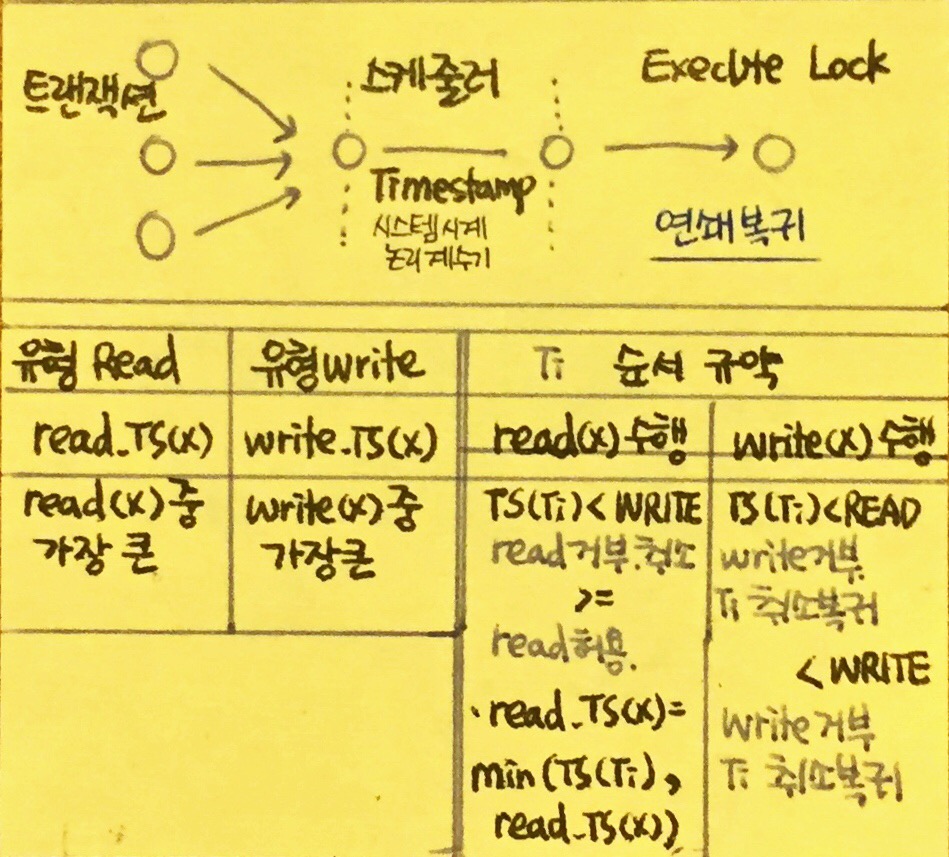 트랜잭션
스케줄러
Execute Lock
Timestamp
시스템시계
논리계수기
연쇄복귀
유형 Read
유형 write
Ti 순서 규약
read_TS(x)
write_TS(x)
read(x) 수행
write(x) 수행
read(x) 중
가장 큰
write(x) 중
가장 큰
TS(Ti) < WRITE
read 거부.취소
>=
read 허용.
· read_TS(x)=
min(TS(Ti),
read_TS(x))
TS(Ti) < READ
write 거부.
Ti 취소복귀
< WRITE
write 거부
Ti 취소복귀